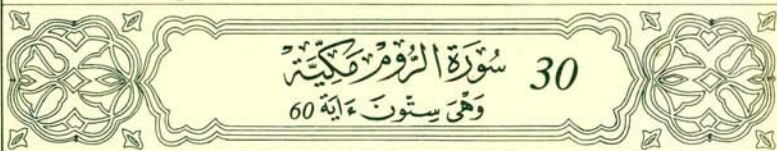 30 سُورَةُ الرُّومِ مَكِّيَّةٌ
وَهْيَ سِتُّونَ ءَايَةً 60